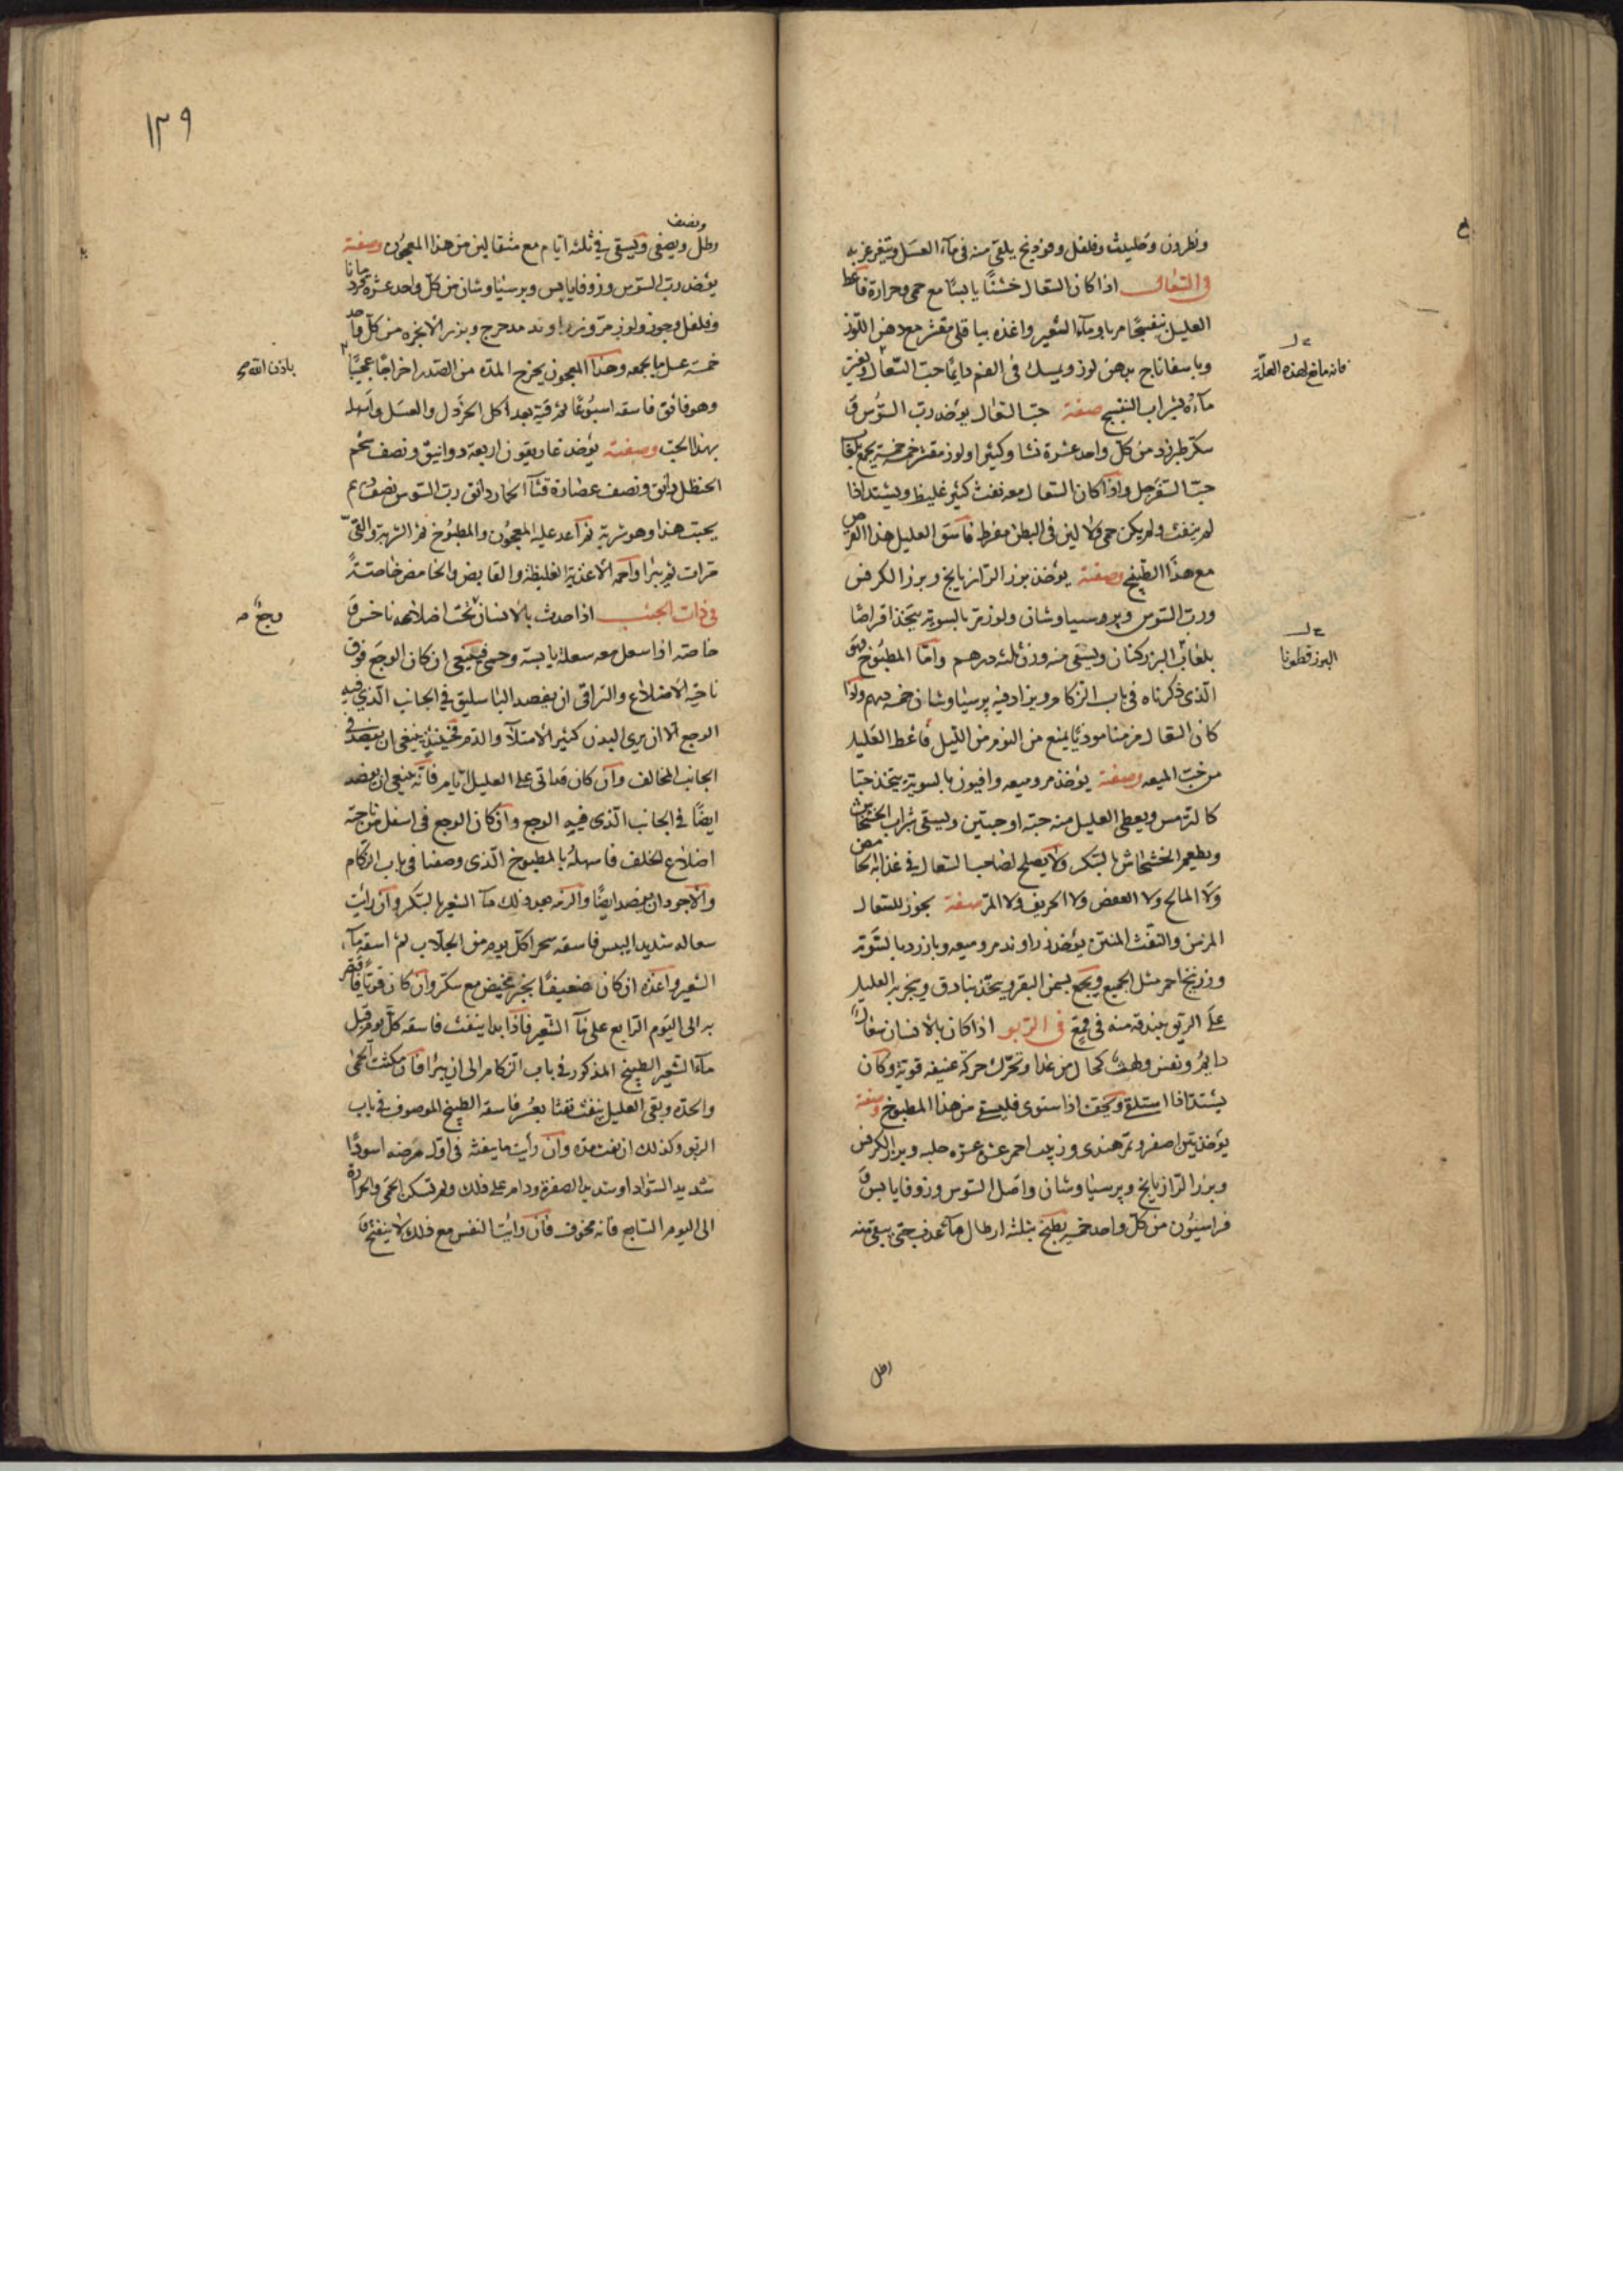 ونطرون وحليث وفلفل وفودنج يلقى منه فى مآء العسل ويتغرغر به
فى السعال اذا كان السعال خشنًا يابسًا مع حمى وحرارة فاعط
العليل بنفسجًا مربا ومآء الشعير واغذه بباقلى مقشر مع دهن اللوز
وباسفاناخ بدهن لوز ويمسك فى الفم دايمًا حب السعال
مآءه بشراب البنفسج صفة حب السعال يؤخذ رب السوس و
سكر طبرزد من كل واحد عشرة نشا وكثيرا ولوز مقشر خمسة خمسة يجمع بلعاب
حب السفرجل واذا كان السعال معه نفث كثير غليظ ويشتد اذا
لم ينفث ولم يكن حمى ولا لين فى البطن مفرط فاسق العليل هذا القرص
مع هذا الطبيخ وصفته يؤخذ بزر الرازيانج وبزر الكرفس
ورب السوس وبرسياوشان ولوز مر بالسوية يتخذ اقراصًا
بلعاب البزر كتان ويسقى منه وزن ثلثه درهم وامّا المطبوخ فهو
الذى ذكرناه فى باب الزكام ويزاد فيه برسياوشان خمسة دراهم واذا
كان السعال مزمنا موذيًا يمنع من النوم من الليل فاعط العليل
من حب الميعه وصفته يؤخذ مر وميعه وافيون بالسوية يتخذ حبّا
كالترمس ويعطى العليل منه حبة او حبتين ويسقى شراب الخشخاش
ويطعم الخشخاش بالسكر ولا يصلح لصاحب السعال فى غذايه الحامض
ولا المالح ولا العفص ولا الحريف ولا المر صفة بخور للسعال
المزمن والنفث المنتن يؤخذ زراوند مر وميعه وبارزد بالسوية
وزرنيخ احمر مثل الجميع ويجمع بسمن البقر ويتخذ بنادق ويبخر به العليل
على الريق ببندقه منه فى قمع فى الربو اذا كان بالانسان سعال
دايم ونفس ولهث كحال من عدا وتحرك حركة عنيفه قوية وكان
يشتد اذا استلقى ويخف اذا استوى فليسق من هذا المطبوخ وصفته
يؤخذ تين اصفر وتمر هندى وزبيب احمر عشرة عشرة حلبه وبزر الكرفس
وبزر الرازيانج وبرسياوشان واصل السوس وزوفا يابس و
فراسيون من كل واحد خمسة يطبخ بثلثة ارطال مآء عذب حتى يبقى منه
رطل
فانه مانع لهذه العلّة
البزر قطونا
١٣٩
ونصف
رطل ويصفى ويسقى فى ثلثه ايّام مع مثقالين من هذا المعجون وصفته
يؤخذ رب السوس وزوفا يابس وبرسياوشان من كل واحد عشرة
وفلفل وجوز ولوز مر وزراوند مدحرج وبزر الانجره من كل واحد
خمسة عسل ما يجمعه وهذا المعجون يخرج المدّة من الصدر اخراجًا عجيبًا
وهو فائق فاسقه اسبوعًا ثم قيه بعد اكل الخردل والعسل واسهله
بهذا الحب وصفته يؤخذ غاريقون اربعة دوانيق ونصف شحم
الحنظل دانق ونصف عصارة قثآء الحمار دانق رب السوس نصف درهم
يحبب هذا وهو شربة ثم اعد عليه المعجون والمطبوخ ثم الشربة والقىّ
مرات ثم يبرا واحمه الاغذية الغليظة والقابض والحامض خاصّةً
فى ذات الجنب اذا حدث بالانسان تحت اضلاعه ناخس و
خاصّة اذا سعل معه سعلة يابسة وحمى فينبغى ان كان الوجع فوق
ناحية الاضلاع والتراقى ان يفصد الباسليق فى الجانب الذى فيه
الوجع الا ان يرى البدن كثير الامتلآء والدم فحينئذ ينبغى ان يفصد فى
الجانب المخالف وان كان قد اتى على العليل ايام فانّه ينبغى ان يفصد
ايضًا فى الجانب الذى فيه الوجع وان كان الوجع فى اسفل من ناحية
اضلاع الخلف فاسهله بالمطبوخ الذى وصفنا فى باب الزكام
والاجود ان يفصد ايضًا والزمه بعد ذلك مآء الشعير بالسكر وان رايت
سعاله شديد اليبس فاسقه سحرا كل يوم من الجلاب ثم اسقه مآء
الشعير واغذه ان كان ضعيفًا بخبز مع سكر وان كان قويًا فاقتصر
به الى اليوم الرابع على مآء الشعير فاذا بدا ينفث فاسقه كل يوم قبل
مآء الشعير الطبيخ المذكور فى باب الزكام الى ان يبرا فان سكنت الحمى
والحدّة وبقى العليل ينفث نفثا بعسر فاسقه الطبيخ الموصوف فى باب
الربو وكذلك ان نفث مدّه وان رأيت ما ينفثه فى اول مرضه اسودًا
شديد السّواد او شديد الصفرة ودام على ذلك ولم تسكن الحمى والحرارة
الى اليوم السّابع فانه مخوف فان رأيت النفس مع ذلك لا ينفتح و
باذن الله
وجع